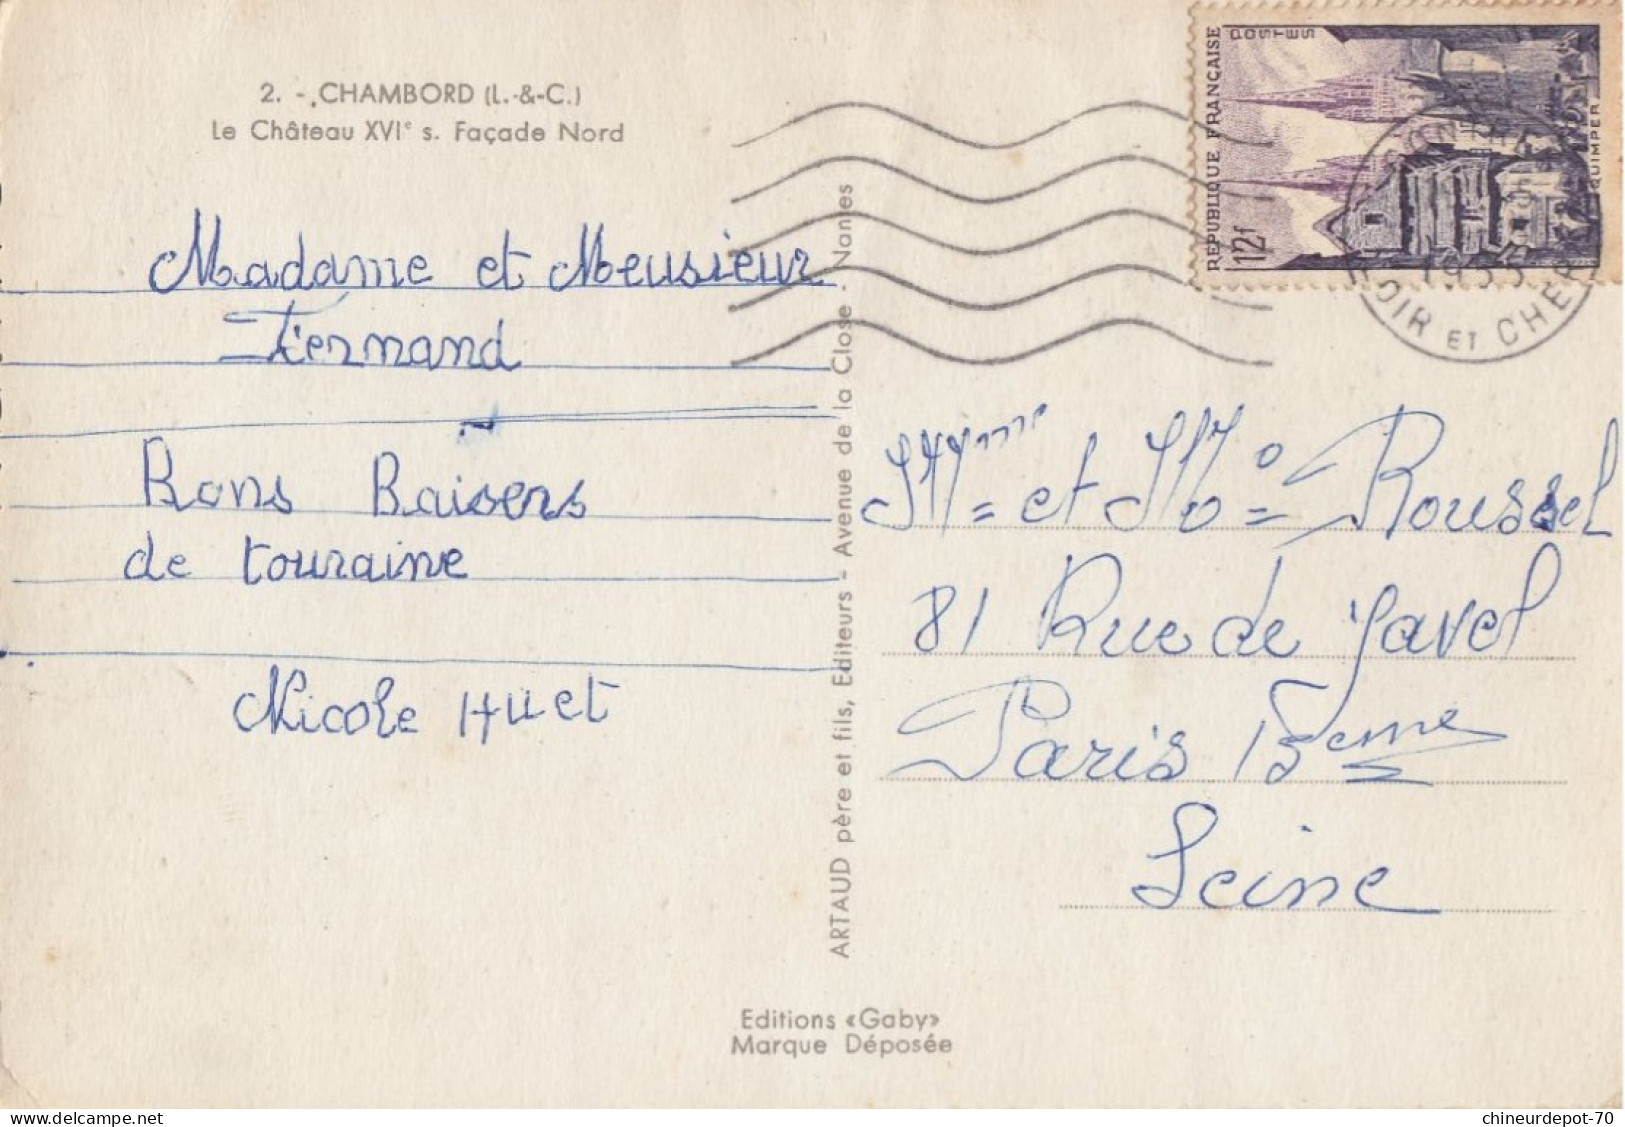 2. - CHAMBORD (L.-&-C.)
Le Château XVIe s. Façade Nord
Madame et Meusieur
Fernand
Bons Baisers
de touraine
Nicole Huet
ARTAUD père et fils, Editeurs - Avenue de la Close . Nantes
RÉPUBLIQUE FRANÇAISE
POSTES
12f
QUIMPER
1953
LOIR ET CHER
Mme et Mo Roussel
81 Rue de Javel
Paris 15eme
Seine
Editions «Gaby»
Marque Déposée
chineurdepot-70